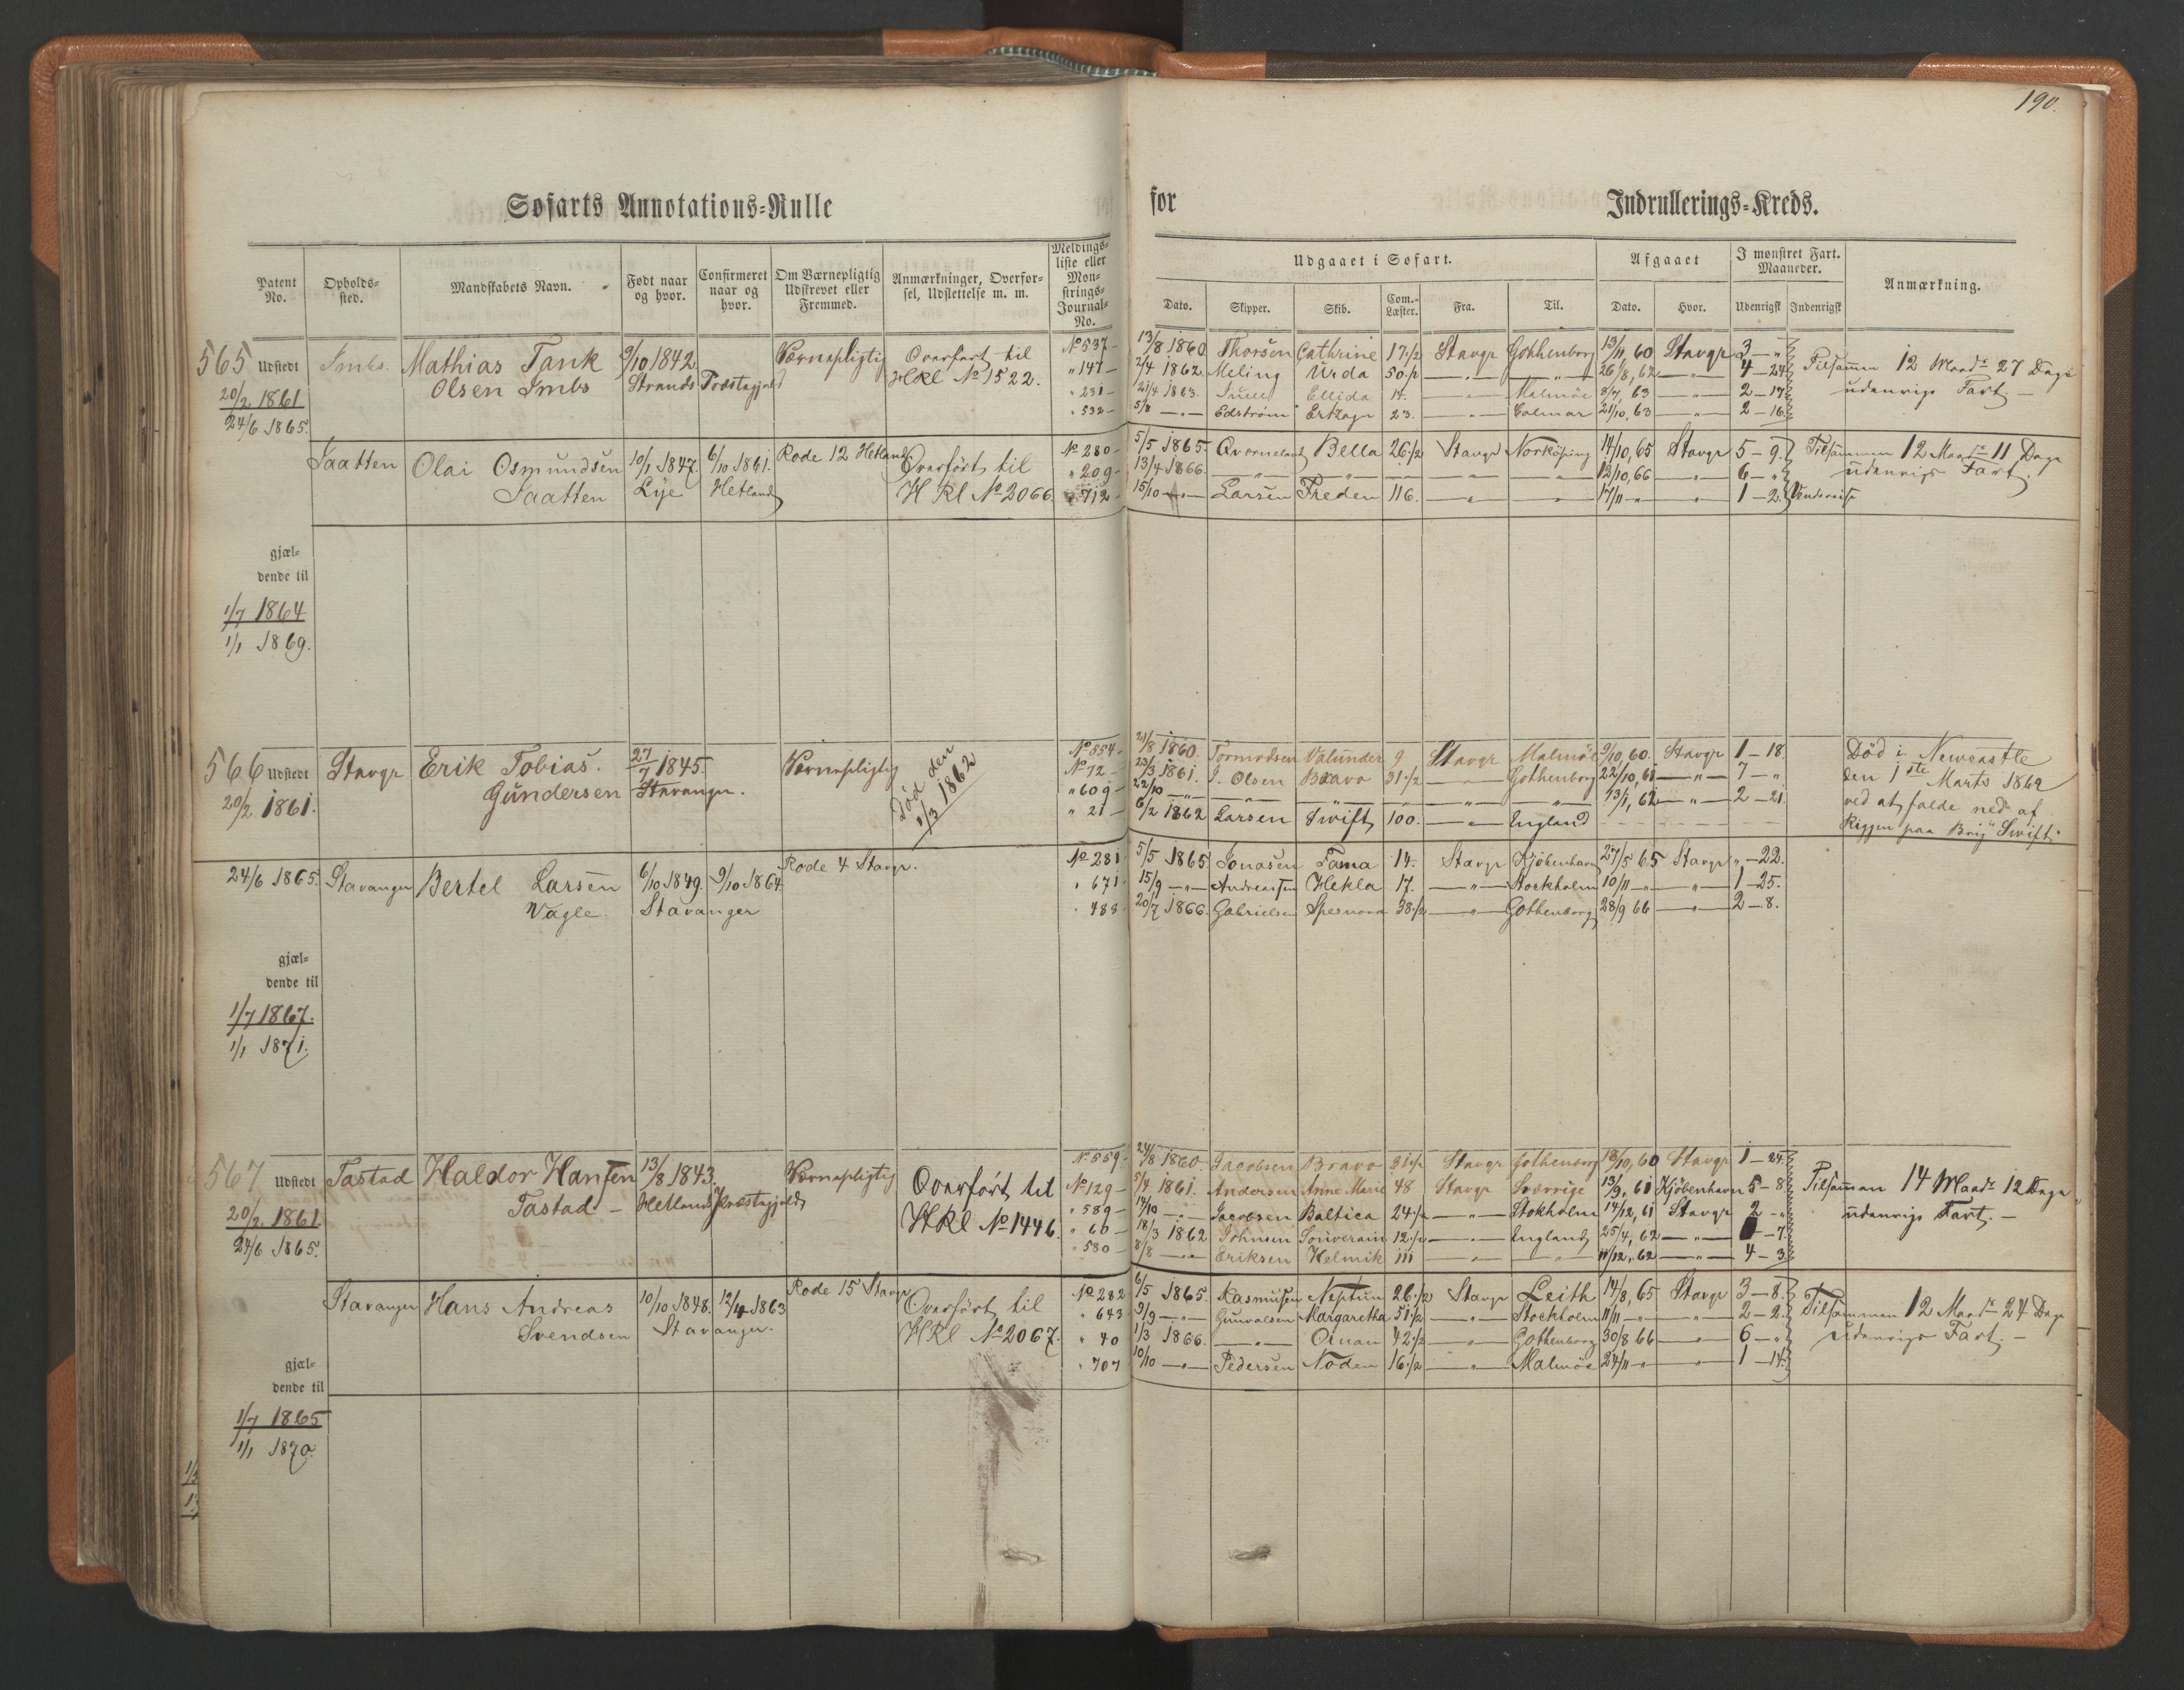 190.
Søfarts Annotations=Rulle for Indrullerings=Kreds.
Patent No. Opholds=sted. Mandskabets Navn. Født naar og hvor. Confirmeret naar og hvor. Om Værnepligtig Udskrevet eller Fremmed. Anmærkninger, Overfør=sel, Udslettelse m. m. Meldings=liste eller Mønstrings=Journal=No.
Udgaaet i Søfart. Afgaaet I mønstret Fart. Maaneder. Anmærkning.
Dato. Skipper. Skib. Com.-Læster. Fra. Til. Dato. Hvor. Udenrigsk Indenrigsk
565 Udstedt Imbs. Mathias Tank 9/10 1842 Værnepligtig Overført til No 537 - 13/8 1860 Thorsen Cathrine 17 1/2 Stavgr Gothenborg 13/11, 60 Stavgr 3 - " Tilsammen 12 Maadr 27 Dage
20/2 1861 Olsen Imbs Strands Præstegjeld HRl No 1522. " 147 - 2/4 1862 Meling Urda 50 1/2 - " - - " - 26/8, 62 - " - 4 - 24 udenrigs Fart. -
24/6 1865. " 231 - 21/4 1863. Ellida 14. - " - Malmöe 8/7, 63 - " - 2 - 17
" 532 - 5/8 - " - Edstrøm 23. - " - Calmar 21/10, 63 - " - 2 - 16
Saatten Olai Osmundsen 10/1 1847. 6/10 1861. Rode 12 Hetland Overført til No 280 - 5/5 1865. Qvorneland Bella 26 1/2 Stavgr Norköping 14/10, 65 Stavgr 5 - 9. Tilsammen 12 Maadr 11 Dage
Saatten Lye Hetland H Rl No 2066. " 209 - 13/4 1866. - " - - " - - " - - " - - " - 12/10, 66 - " - 6 - " udenrigs Fart.
" 712 - 15/10 - " - Larsen Freden 116. - " - - " - 17/11 - " - " 1 - 2.
gjæl=
dende til
1/7 1864
1/1 1869.
566 Udstedt Stavgr Erik Tobias. 27/7 1845. Værnepligtig Død den No 554 - 21/8 1860. Tormodsen Valunder 9 Stavgr Malmöe 9/10, 60. Stavgr 1 - 18. Død i Newcastle
20/2 1861. Gundersen Stavanger. 1/3 1862 No 72 - 23/3 1861. J. Olsen Bravo 31 1/2 - " - Gothenborg 22/10, 61 - " - 7 - " den 1ste Marts 1862
" 609 - 22/10 - " - - " - - " - - " - - " - - " - 13/1, 62 - " - 2 - 21. ved at falde ned af
" 21 - 6/2 1862 Larsen Swift 100. - " - England Riggen paa Brig "Swift".
24/6 1865. Stavanger Bertel Larsen 6/10 1849. 9/10 1864. Rode 4 Stavgr. No 281 5/5 1865 Jonasen Fama 14. Stavgr Kjöbenhavn 27/5 65 Stavgr " - 22.
Vagle. Stavanger " 671 15/9 - " - Andreassen Hekla 17. - " - Stockholm 10/11 - " - - " - 1 - 25.
" 488 20/7 1866. Gabrielsen Spesnova 38 1/2 - " - Gothenborg 28/9 66 - " - 2 - 8.
gjæl=
dende til
1/7 1867.
1/1 1871.
567 Udstedt Tastad Haldor Hansen 13/8 1843. Værnepligtig Overført til No 559 - 24/8 1860. Jacobsen Bravo 31 1/2 Stavgr Gothenborg 18/10, 60 Stavgr 1 - 24. Tilsammen 14 Maadr 12 Dage
20/2. 1861 Tastad - Hetlands Præstegjeld HRl No 1446. No 129 - 5/4 1861. Andersen Anne Marie 48 Stavgr Sverrige 13/9, 61 Kjöbenhavn 5 - 8 udenrigs Fart. -
24/6 1865. " 589 - 14/10 - " - Jacobsen Baltica 24 1/2 - " - Stokholm 14/12, 61 Stavgr 2 - "
" 60 - 18/3 1862 Johnsen Souverain 12 1/2 - " - England 25/4, 62 - " - - 7.
" 580 - 8/8 - " - Eriksen Helmik 111 - " - - " - 11/12, 62 - " - 4 - 3
Stavanger Hans Andreas 10/10 1848. 12/4 1863 Rode 15 Stavgr Overført til No 282 6/5 1865. Rasmussen Neptun 26 1/2 Stavgr Leith 14/8, 65 Stavgr 3 - 8. Tilsammen 12 Maadr 24 Dage
Svendsen Stavanger. HRl No 2067. " 643 9/9 - " - Gunvalsen Margaretha 51 1/2 - " - Stockholm 11/11 - " - - " - 2 - 2. udenrigs Fart. -
" 40 1/3 1866. - " - 42 1/2 - " - Gothenborg 30/8 66 - " - 6 - "
" 707 10/10 - " - Pedersen Noden 16 1/2 - " - Malmöe 24/11 - " - " 1 - 14.
gjæl=
dende til
1/7 1865
1/1 1870.